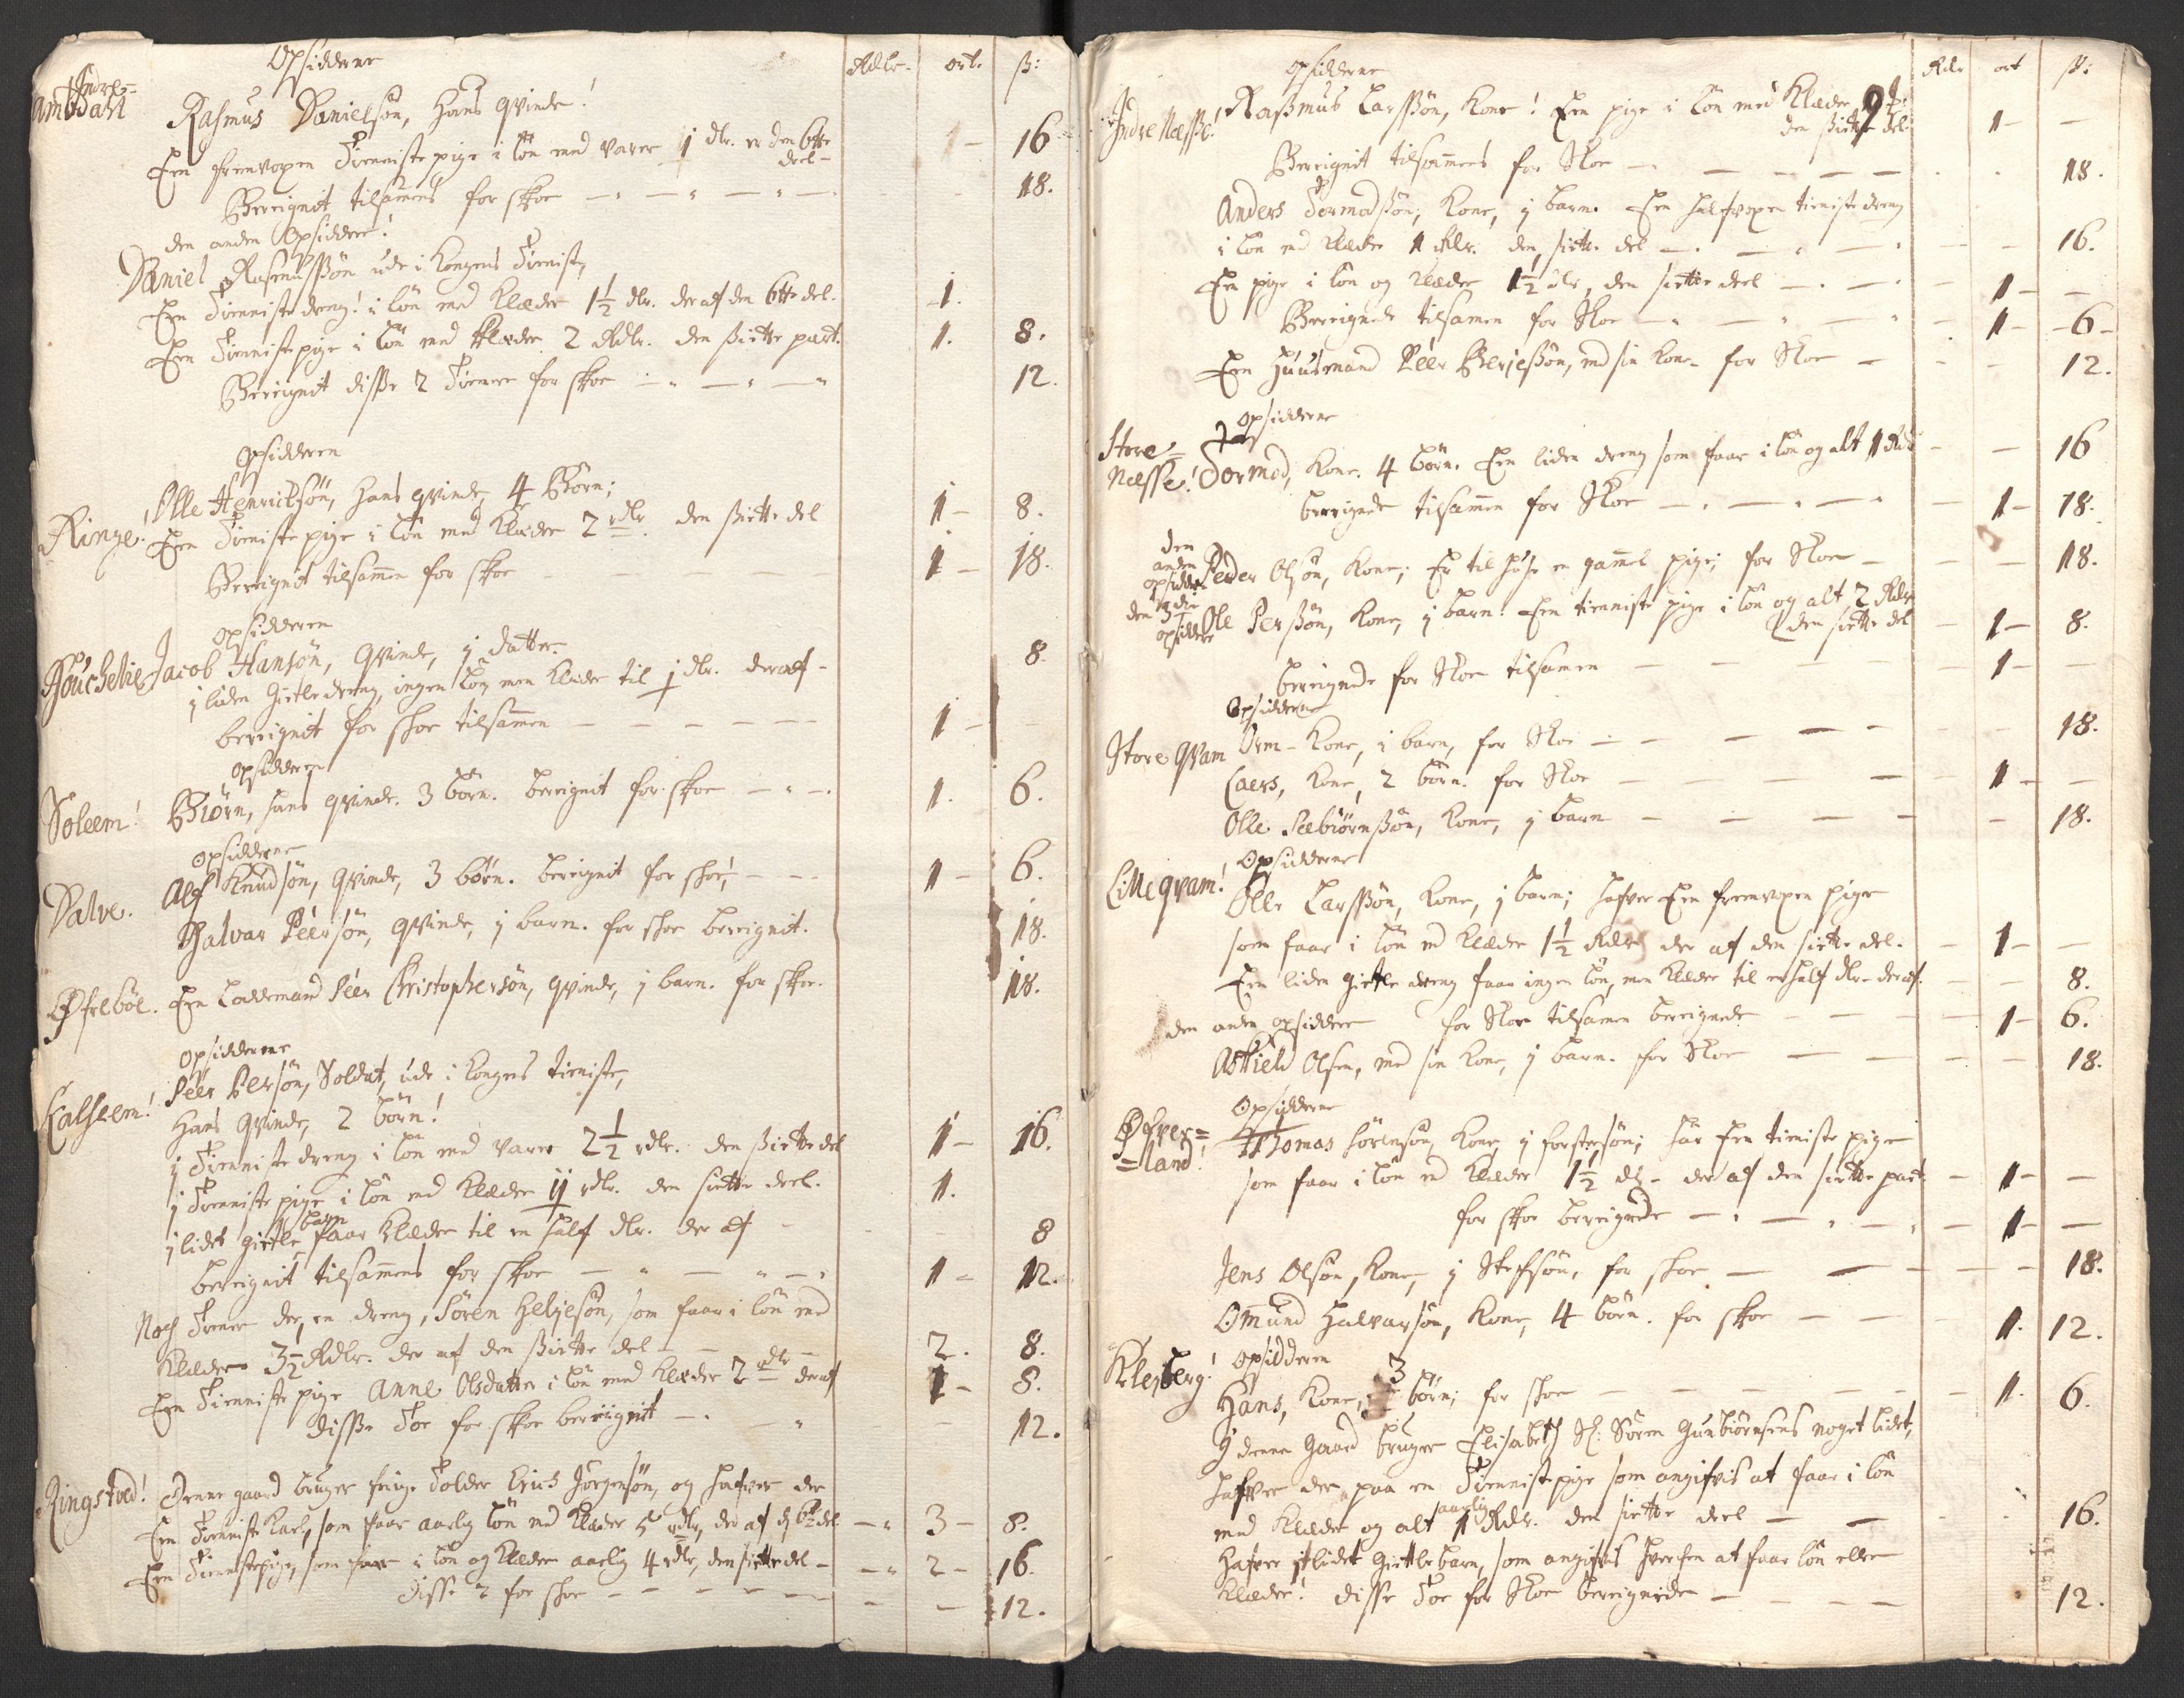 Opsiddere Rdlr. ort. ß:
Indre=
Ambdahl Rasmus Danielsøn, Hans qvinde!
Een fremvoxen Tienniste pige i løn med varer 1 dlr. er den 6tte 1 - 16
deel -
Bereignit tilsammens for skoe - 18.
den anden Opsidder!
Daniel Rasmusßøn ude i Kongens Tienist,
Een Tienniste dreng! i løn med Klæder 1½ dlr. der af den 6tte del. 1.
Een Tienniste pige i løn med Klæder 2 Rdlr. den siette part. 1. 8.
Bereignit disse 2 Tiennere for skoe 12.
Opsidderen
Ringe! Olle Henricksøn, Hans qvinde, 4 Børn;
Een Tienniste pige i løn med Klæder 2 rdlr. den siette del 1 - 8.
Bereignit tilsammen for skoe 1 - 18.
Opsidderen
Houchelie Jacob Hansøn, qvinde, 1 datter.
1 liden Gietledreng, ingen løn men Klæder til 1 dlr. deraf - 8.
bereignit for skoe tilsammen 1 -
Opsidderen
Soleem! Biørn, hans qvinde. 3 børn. bereignit for skoe 1. 6.
Opsiddere
Dalve. Alf Knudsøn, qvinde, 3 børn. bereignit for skoe, 1 - 6.
Halvar Peersøn, qvinde, 1 barn. for skoe bereignit. 18.
Øfrebøe. Een Loddemand Peer Christophersøn, qvinde, 1 barn. for skoe. 18.
Opsidderene
Calheem! Peer Persøn, Soldat, ude i Kongens tieniste,
Hans qvinde, 2 børn!
1 Tienniste dreng i løn med varer 2½ rdlr. den siette del 1 - 16.
1 Tienniste pige i løn med Klæder 1½ rdlr. den siette deel. 1.
barn
1 lidet gietle faar Klæder til en half dlr. der af 8
bereignit tilsammens for skoe 1 - 12.
Noch Tiener der, en dreng, Søren Heljesøn, som faar i løn med
Klæder 3½ Rdlr. der af den siette del 2. 8.
Een Tienniste pige Anne Olsdatter i løn med Klæder 2 rdlr deraf 1 - 8.
disse Toe for skoe bereignit 12.
Ringstved! Denne gaard bruger sing. Tolder Erich Jørgensøn, og hafver der
Een Tienniste Karl, som faar aarlig løn med Klæder 5 rdlr, der af d 6te del 3 - 8.
Een Tiennistepige, som faar i løn og Klæder aarlig 4 rdlr, den siette del - 2 - 16.
disse 2 for skoe 12.
Opsiddere Rdlr ort ß:
9
Indre Næsse! Rasmus Larsßøn, Kone! Een pige i løn med Klæder
den siette del. 1 -
Bereignit tilsammens for Skoe 18.
Anders Tormodsøn, Kone, 1 barn. Een halfvoxen tieniste dreng
i løn med Klæder 1 Rdlr. den siette del 16.
Een pige i løn og Klæder 1½ dlr, den siette deel 1 -
Bereignede tilsamen for Skoe 1 - 6 -
Een Huusmand Peer Berjesøn, med sin Kone - for Skoe 12.
Opsiddere
Store=
Næsse! Tormod, Kone. 4 børn. Een liden dreng som faar i løn og alt 1 Rdl 16
bereignede tilsammen for Skoe 1 - 18.
den
anden
opsidder Peder Olsøn, Kone; Er til huse en gammel pige; for Skoe 18.
den 3die
opsidder Ole Persøn, Kone, 1 barn. Een tienniste pige i løn og alt 2 Rdlr
den siette del 1 - 8.
bereignede for Skoe tilsamen 1 -
Opsiddere
Store Qvam Orm - Kone, 1 barn, for Skoe 18.
Laers, Kone, 2 børn. for Skoe 1 -
Olle Sæbiørnsøn, Kone, 1 barn 18.
Opsiddere
Lille qvam! Olle Larsßøn, Kone, 1 barn; hafver Een fremvoxen pige
som faar i løn med Klæder 1½ Rdlr der af den siette del. 1 -
Een liden gietle dreng faar ingen løn, men Klæder til en half dlr. deraf. 8.
den anden opsidder for Skoe tilsamen bereignede 1 - 6.
Askield Olsen, med sin Kone, 1 barn. for Skoe 18.
Opsiddere
Øfver=
=land! Thomas Sørensøn, Kone, 1 forstersøn; har Een tieniste pige
som faar i løn med Klæder 1½ dlr - der af den siette part. 1 -
for skoe bereignede 1 -
Jens Olsøn, Kone, 1 Stefsøn, for skoe 18.
Omund Halvarsøn, Kone, 4 børn. for skoe 1. 12.
Opsidderen
Kleyberg! Hans, Kone, 3 børn; for skoe 1. 6.
I denne Gaard bruger Elisabeth Sl: Søren Gunbiørnsens noget lidet,
hafver der paa en Tiennistepige som angifvis at faar i løn
aarlig
med Klæder og alt 1 Rdlr. den siette deel 16.
Hafver it lidet Gietlebarn, som angifvis hverchen at faar løn eller
Klæder! disse Toe for Skoe bereignede 12.